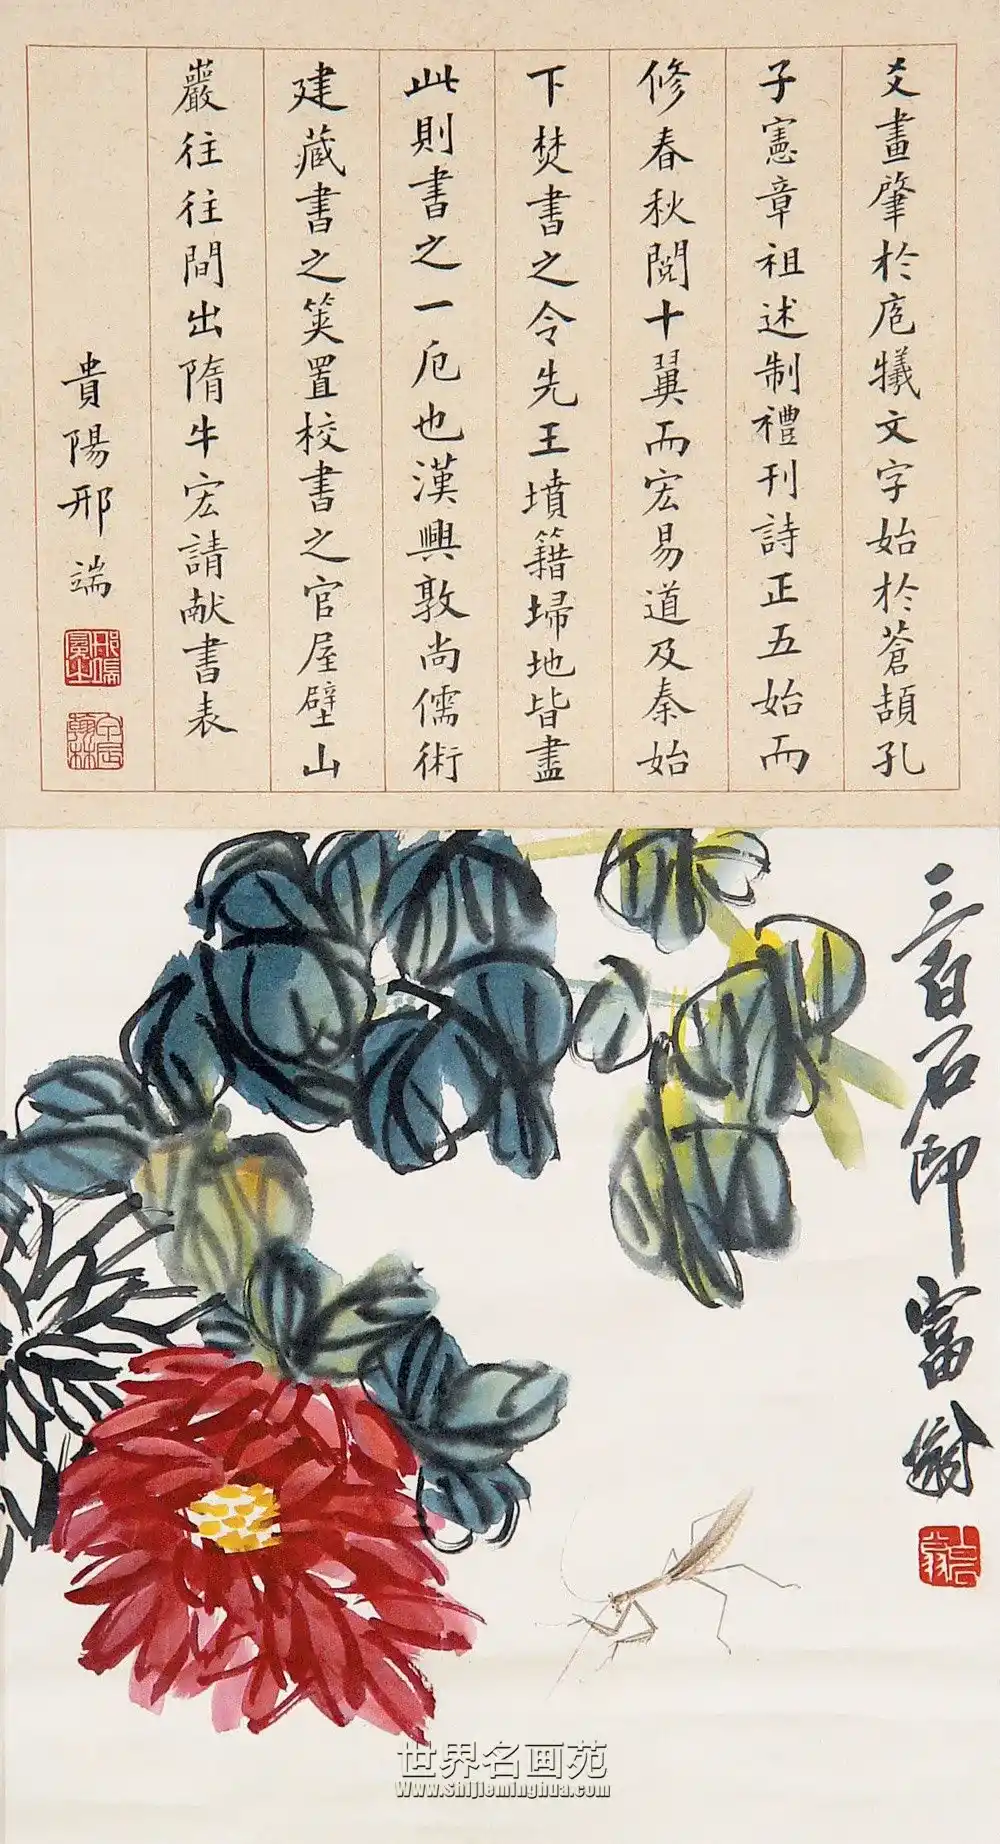 爻畫肇於庖犧文字始於蒼頡孔
子憲章祖述制禮刊詩正五始而
修春秋閱十翼而宏易道及秦始
下焚書之令先王墳籍埽地皆盡
此則書之一厄也漢興敦尚儒術
建藏書之筴置校書之官屋壁山
巖往往間出隋牛宏請献書表
貴陽邢端
甲辰翰林
三百石印富翁
世界名画苑
Www.shijieminghua.com